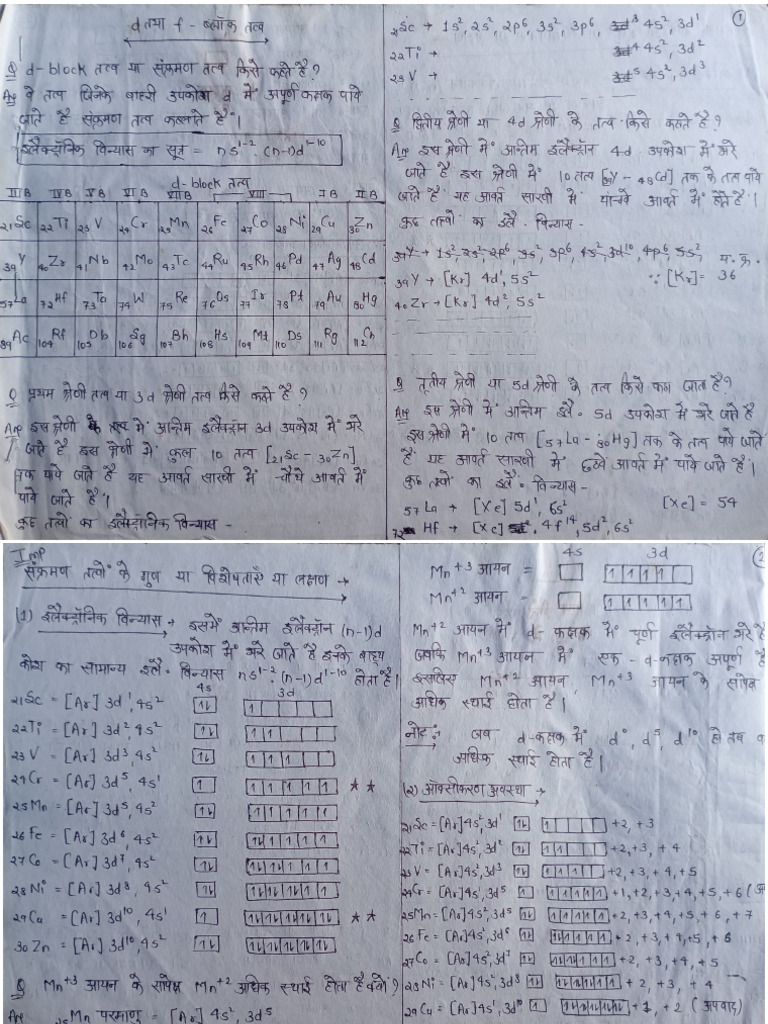 d तथा f - ब्लॉक तत्व
Q d-block तत्व या संक्रमण तत्व किसे कहते है?
Ans वे तत्व जिनके बाहरी उपकोश d में अपूर्ण कक्षक पाये
जाते है संक्रमण तत्व कहलाते है।
इलैक्ट्रॉनिक विन्यास का सूत्र = ns¹⁻² (n-1)d¹⁻¹⁰
d-block तत्व
III B IV B V B VI B VII B VIII I B II B
₂₁Sc ₂₂Ti ₂₃V ₂₄Cr ₂₅Mn ₂₆Fe ₂₇Co ₂₈Ni ₂₉Cu ₃₀Zn
₃₉Y ₄₀Zr ₄₁Nb ₄₂Mo ₄₃Tc ₄₄Ru ₄₅Rh ₄₆Pd ₄₇Ag ₄₈Cd
₅₇La ₇₂Hf ₇₃Ta ₇₄W ₇₅Re ₇₆Os ₇₇Ir ₇₈Pt ₇₉Au ₈₀Hg
₈₉Ac ₁₀₄Rf ₁₀₅Db ₁₀₆Sg ₁₀₇Bh ₁₀₈Hs ₁₀₉Mt ₁₁₀Ds ₁₁₁Rg ₁₁₂Cn
Q प्रथम श्रेणी तत्व या 3d श्रेणी तत्व किसे कहते है?
Ans इस श्रेणी में अन्तिम इलैक्ट्रॉन 3d उपकोश में भरे
जाते है इस श्रेणी में कुल 10 तत्व [₂₁Sc - ₃₀Zn]
तक पाये जाते है यह आवर्त सारणी में चौथे आवर्त में
पाये जाते है।
कुछ तत्वों का इलैक्ट्रॉनिक विन्यास -
①
₂₁Sc → 1s², 2s², 2p⁶, 3s², 3p⁶, 4s², 3d¹
₂₂Ti → 4s², 3d²
₂₃V → 4s², 3d³
Q द्वितीय श्रेणी या 4d श्रेणी के तत्व किसे कहते है?
Ans इस श्रेणी में अन्तिम इलैक्ट्रॉन 4d उपकोश में भरे
जाते है इस श्रेणी में 10 तत्व [₃₉Y - ₄₈Cd] तक के तत्व पाये
जाते है यह आवर्त सारणी में पांचवे आवर्त में होते है।
कुछ तत्वों का इलै. विन्यास -
₃₉Y → 1s², 2s², 2p⁶, 3s², 3p⁶, 4s², 3d¹⁰, 4p⁶, 5s² प. क्र.
₃₉Y → [Kr] 4d¹, 5s² ∵ [Kr] = 36
₄₀Zr → [Kr] 4d², 5s²
Q तृतीय श्रेणी या 5d श्रेणी के तत्व किसे कहा जाता है?
Ans इस श्रेणी में अन्तिम इलै. 5d उपकोश में भरे जाते है
इस श्रेणी में 10 तत्व [₅₇La - ₈₀Hg] तक के तत्व पाये जाते
है यह आवर्त सारणी में छठवे आवर्त में पाये जाते है।
कुछ तत्वों का इलै. विन्यास -
₅₇La → [Xe] 5d¹, 6s² [Xe] = 54
₇₂Hf → [Xe] 4f¹⁴, 5d², 6s²
Imp
संक्रमण तत्वों के गुण या विशेषताएँ या लक्षण →
(1) इलैक्ट्रॉनिक विन्यास → इसमें अन्तिम इलैक्ट्रॉन (n-1)d
उपकोश में भरे जाते है इनके बाह्य
कोश का सामान्य इलै. विन्यास ns¹⁻² (n-1)d¹⁻¹⁰ होता है।
4s 3d
₂₁Sc = [Ar] 3d¹, 4s²
₂₂Ti = [Ar] 3d², 4s²
₂₃V = [Ar] 3d³, 4s²
₂₄Cr = [Ar] 3d⁵, 4s¹ ★ ★
₂₅Mn = [Ar] 3d⁵, 4s²
₂₆Fe = [Ar] 3d⁶, 4s²
₂₇Co = [Ar] 3d⁷, 4s²
₂₈Ni = [Ar] 3d⁸, 4s²
₂₉Cu = [Ar] 3d¹⁰, 4s¹ ★ ★
₃₀Zn = [Ar] 3d¹⁰, 4s²
Q Mn⁺³ आयन के सापेक्ष Mn⁺² अधिक स्थाई होता है क्यों?
Ans ₂₅Mn परमाणु = [Ar] 4s², 3d⁵
②
4s 3d
Mn⁺³ आयन =
Mn⁺² आयन -
Mn⁺² आयन में d- कक्षक में पूर्ण इलैक्ट्रॉन भरे है
जबकि Mn⁺³ आयन में एक -d-कक्षक अपूर्ण है
इसलिए Mn⁺² आयन, Mn⁺³ आयन के सापेक्ष
अधिक स्थाई होता है।
नोट :- जब d-कक्षक में d⁰, d⁵, d¹⁰ हो तब
अधिक स्थाई होता है।
(2) ऑक्सीकरण अवस्था →
₂₁Sc = [Ar] 4s², 3d¹ +2, +3
₂₂Ti = [Ar] 4s², 3d² +2, +3, +4
₂₃V = [Ar] 4s², 3d³ +2, +3, +4, +5
₂₄Cr = [Ar] 4s¹, 3d⁵ +1, +2, +3, +4, +5, +6
₂₅Mn = [Ar] 4s², 3d⁵ +2, +3, +4, +5, +6, +7
₂₆Fe = [Ar] 4s², 3d⁶ +2, +3, +4, +5, +6
₂₇Co = [Ar] 4s², 3d⁷ +2, +3, +4, +5
₂₈Ni = [Ar] 4s², 3d⁸ +2, +3, +4
₂₉Cu = [Ar] 4s¹, 3d¹⁰ +1, +2 (अपवाद)